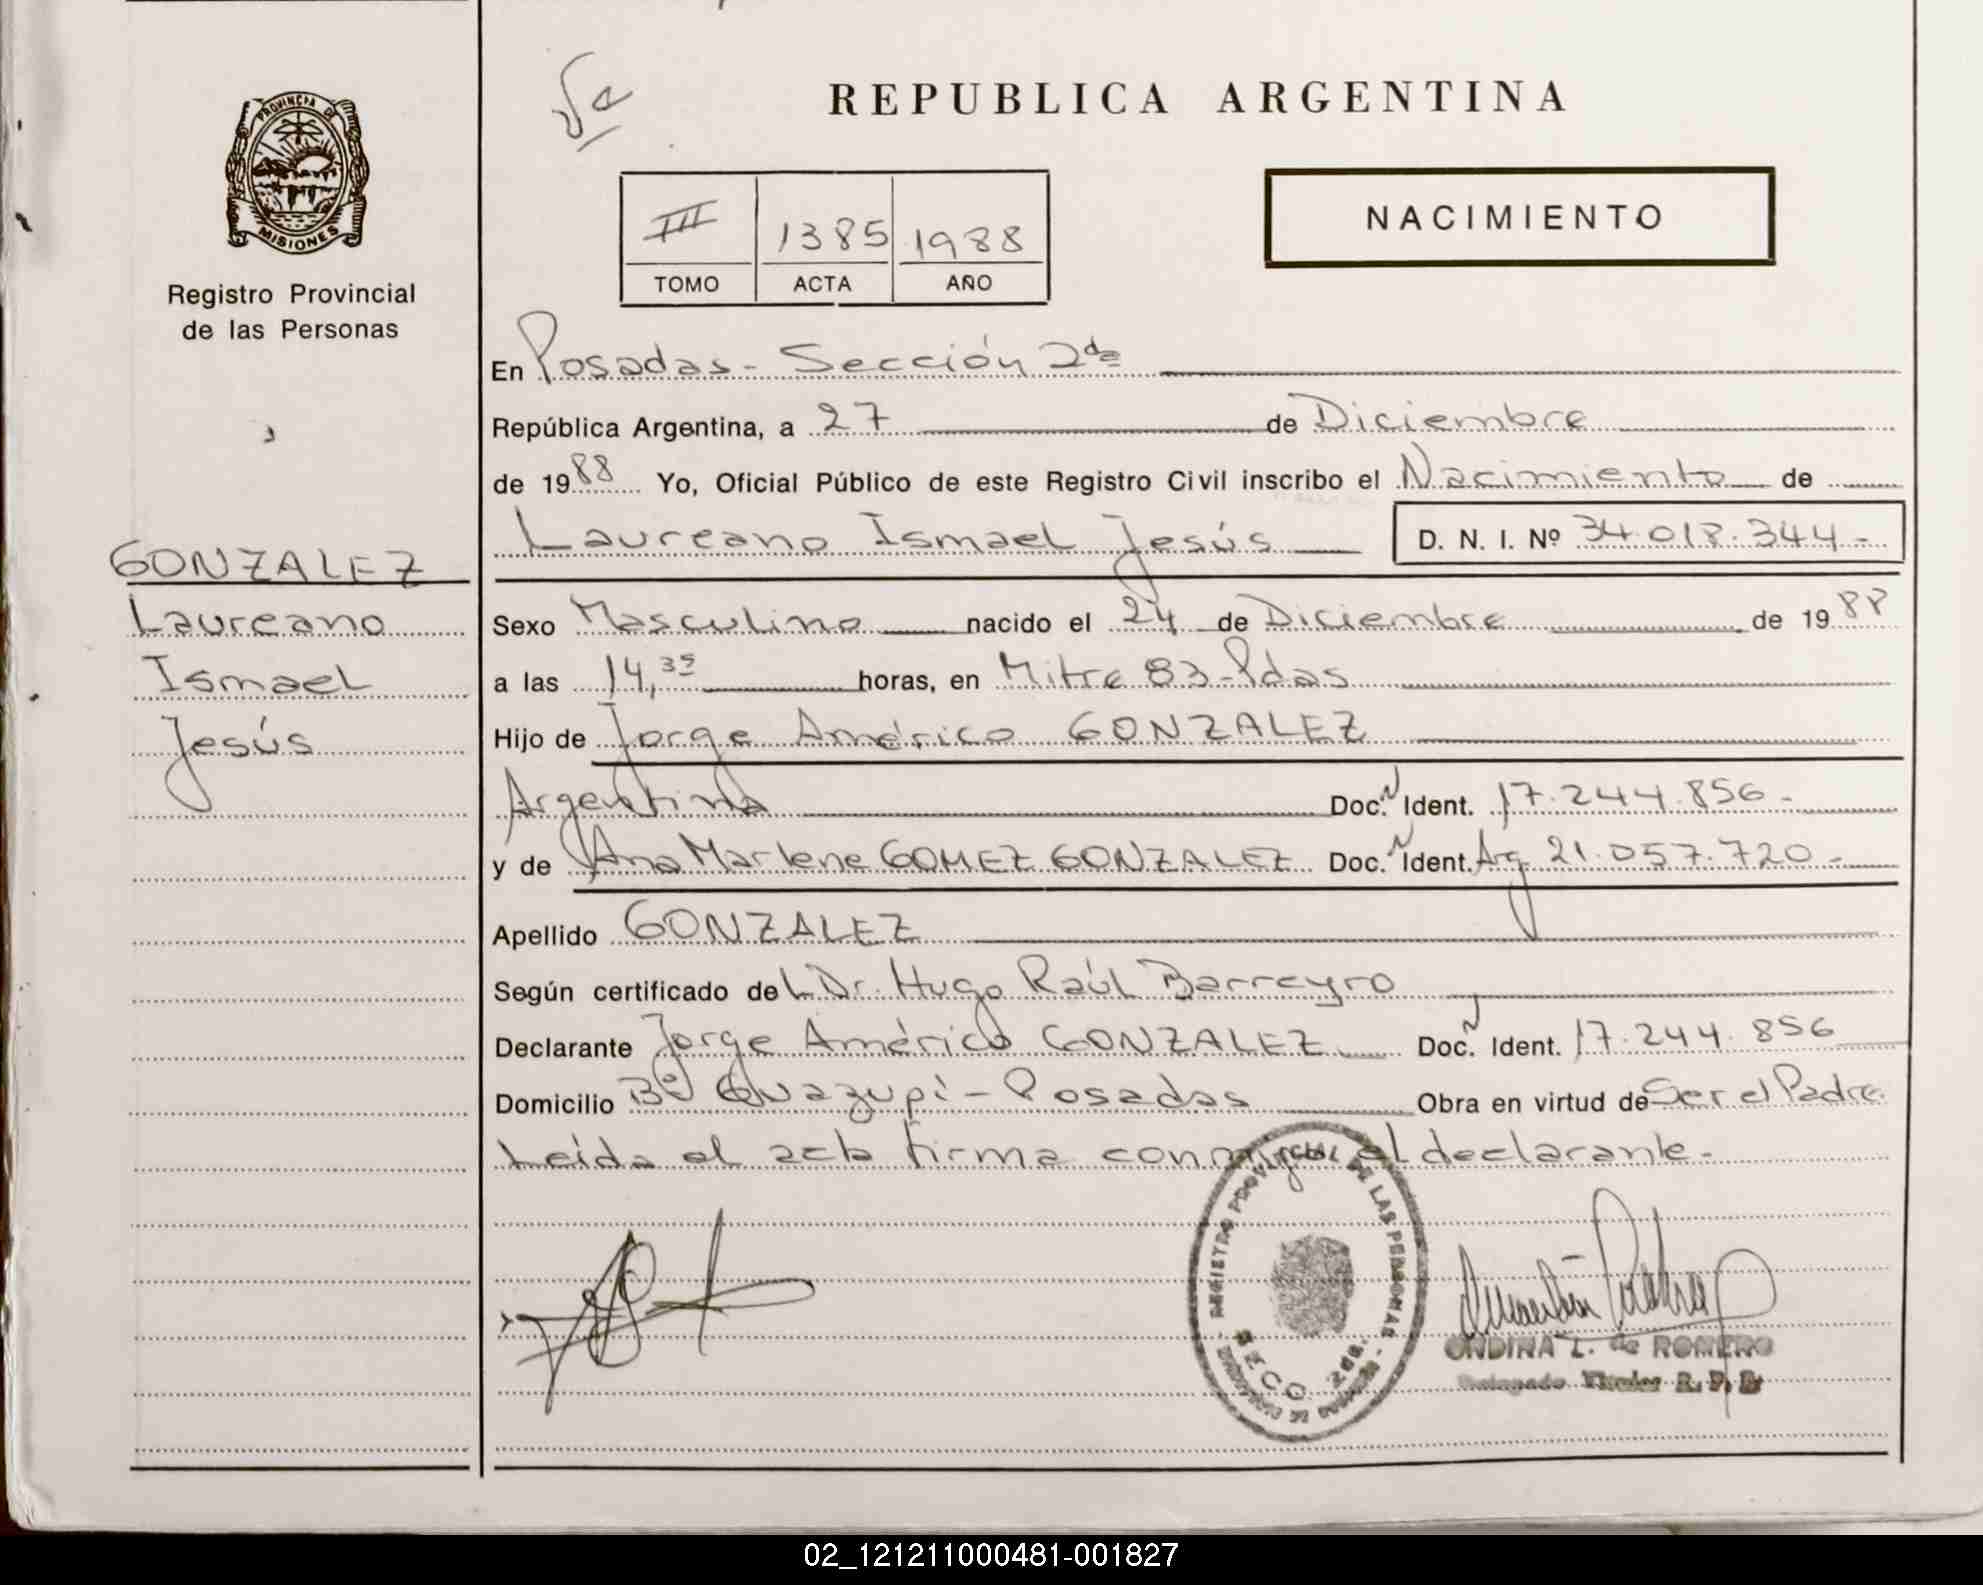 REPUBLICA ARGENTINA
PROVINCIA DE
MISIONES
Registro Provincial
de las Personas
NACIMIENTO
III 1385 1988
TOMO ACTA AÑO
En Posadas - Sección 2da
República Argentina, a 27 de Diciembre
de 1988 Yo, Oficial Público de este Registro Civil inscribo el Nacimiento de
Laureano Ismael Jesús D. N. I. Nº 34.018.344-
GONZALEZ
Laureano
Ismael
Jesús
Sexo Masculino nacido el 24 de Diciembre de 1988
a las 14,35 horas, en Mitre 83-Pdas
Hijo de Jorge Américo GONZALEZ
Argentina Doc. Ident. 17.244.856-
y de Ana Marlene GOMEZ GONZALEZ Doc. Ident. Arg. 21.057.720-
Apellido GONZALEZ
Según certificado del Dr. Hugo Raúl Barreyro
Declarante Jorge Américo GONZALEZ Doc. Ident. 17.244.856
Domicilio Bº Guazupí - Posadas Obra en virtud de Ser el Padre
Leída el acta firma conmigo el declarante.
REGISTRO PROVINCIAL DE LAS PERSONAS
SECC. 2da.
ONDINA L. de ROMERO
Delegado Titular R. P. P.
02_121211000481-001827